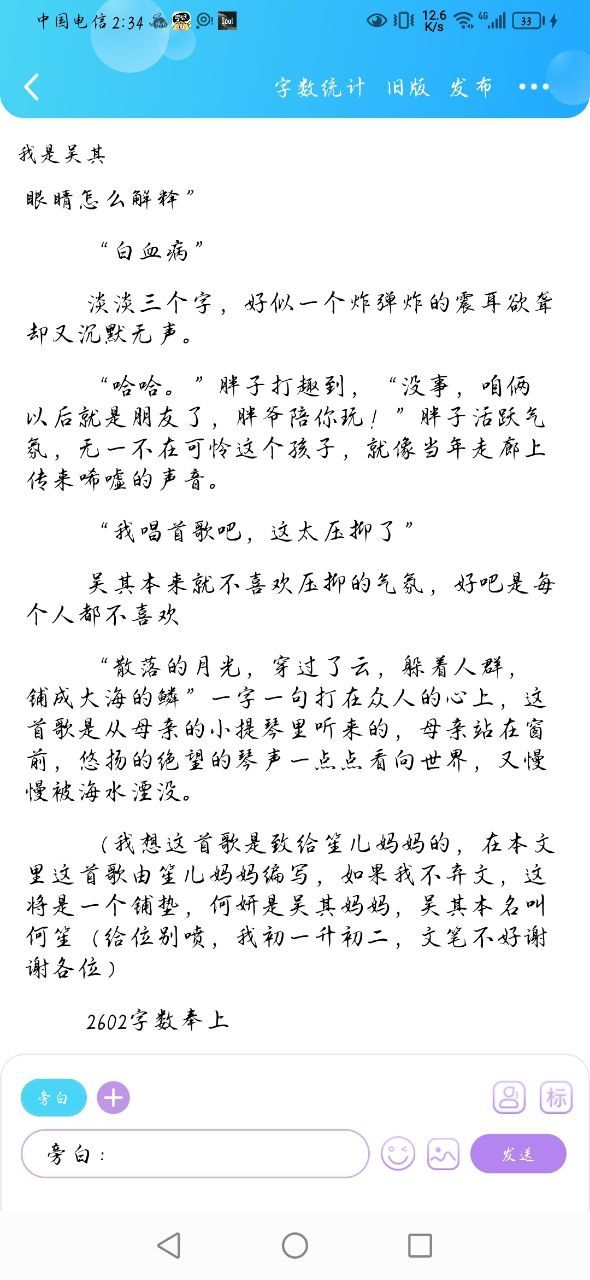 中国电信2:34
Soul
12.6
K/s
4G
33
字数统计 旧版 发布
我是吴其
眼睛怎么解释”
“白血病”
淡淡三个字，好似一个炸弹炸的震耳欲聋
却又沉默无声。
“哈哈。”胖子打趣到，“没事，咱俩
以后就是朋友了，胖爷陪你玩！”胖子活跃气
氛，无一不在可怜这个孩子，就像当年走廊上
传来唏嘘的声音。
“我唱首歌吧，这太压抑了”
吴其本来就不喜欢压抑的气氛，好吧是每
个人都不喜欢
“散落的月光，穿过了云，躲着人群，
铺成大海的鳞”一字一句打在众人的心上，这
首歌是从母亲的小提琴里听来的，母亲站在窗
前，悠扬的绝望的琴声一点点看向世界，又慢
慢被海水湮没。
（我想这首歌是致给笙儿妈妈的，在本文
里这首歌由笙儿妈妈编写，如果我不弃文，这
将是一个铺垫，何妍是吴其妈妈，吴其本名叫
何笙（给位别喷，我初一升初二，文笔不好谢
谢各位）
2602字数奉上
旁白
标
旁白：
发送